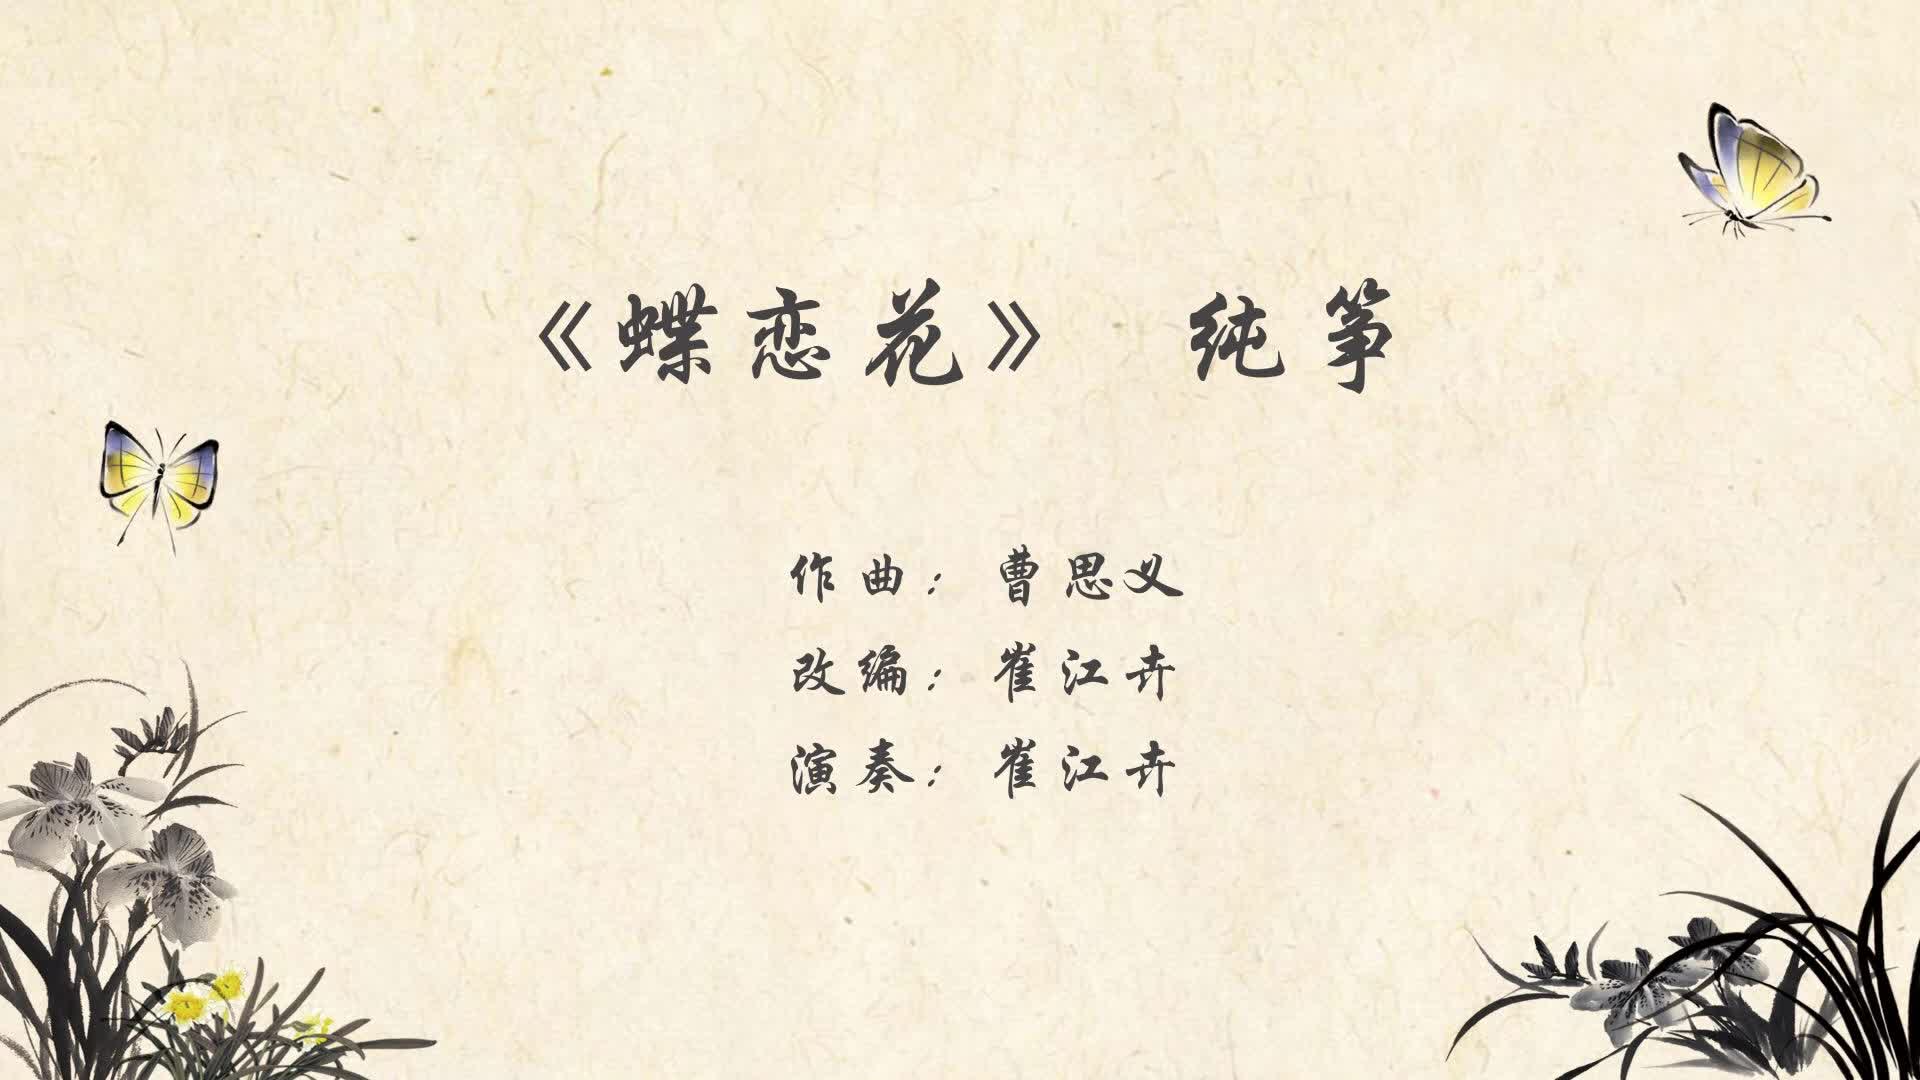 《蝶恋花》 纯筝
作曲：曹思义
改编：崔江卉
演奏：崔江卉